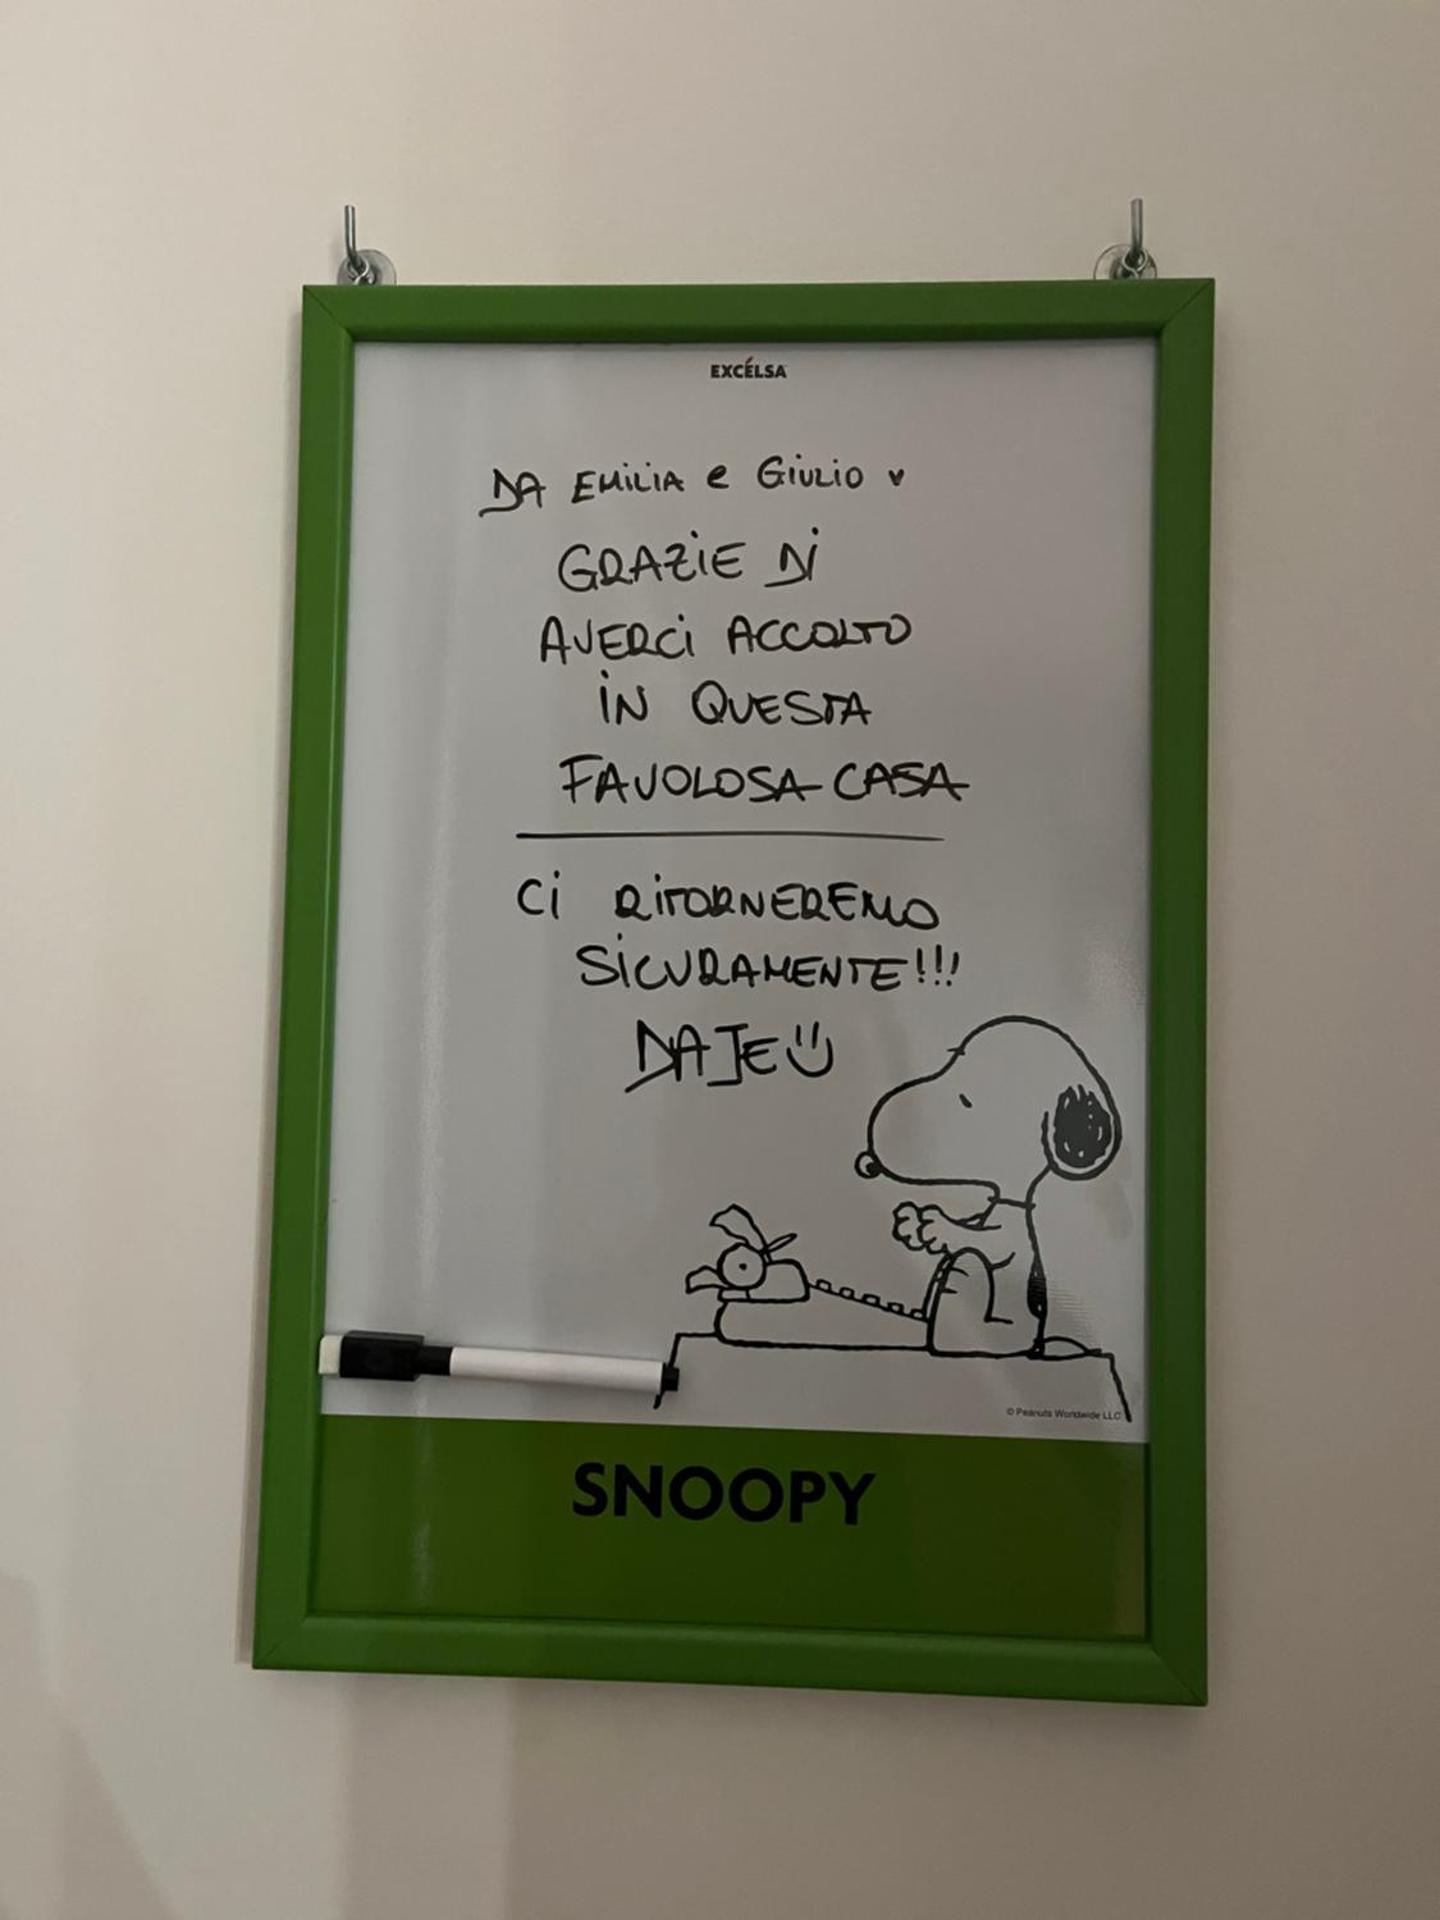 EXCÉLSA
DA EMILIA e GIULIO ♥
GRAZIE DI
AVERCI ACCOLTO
IN QUESTA
FAVOLOSA CASA
CI RITORNEREMO
SICURAMENTE!!!
DAJE
© Peanuts Worldwide LLC
SNOOPY